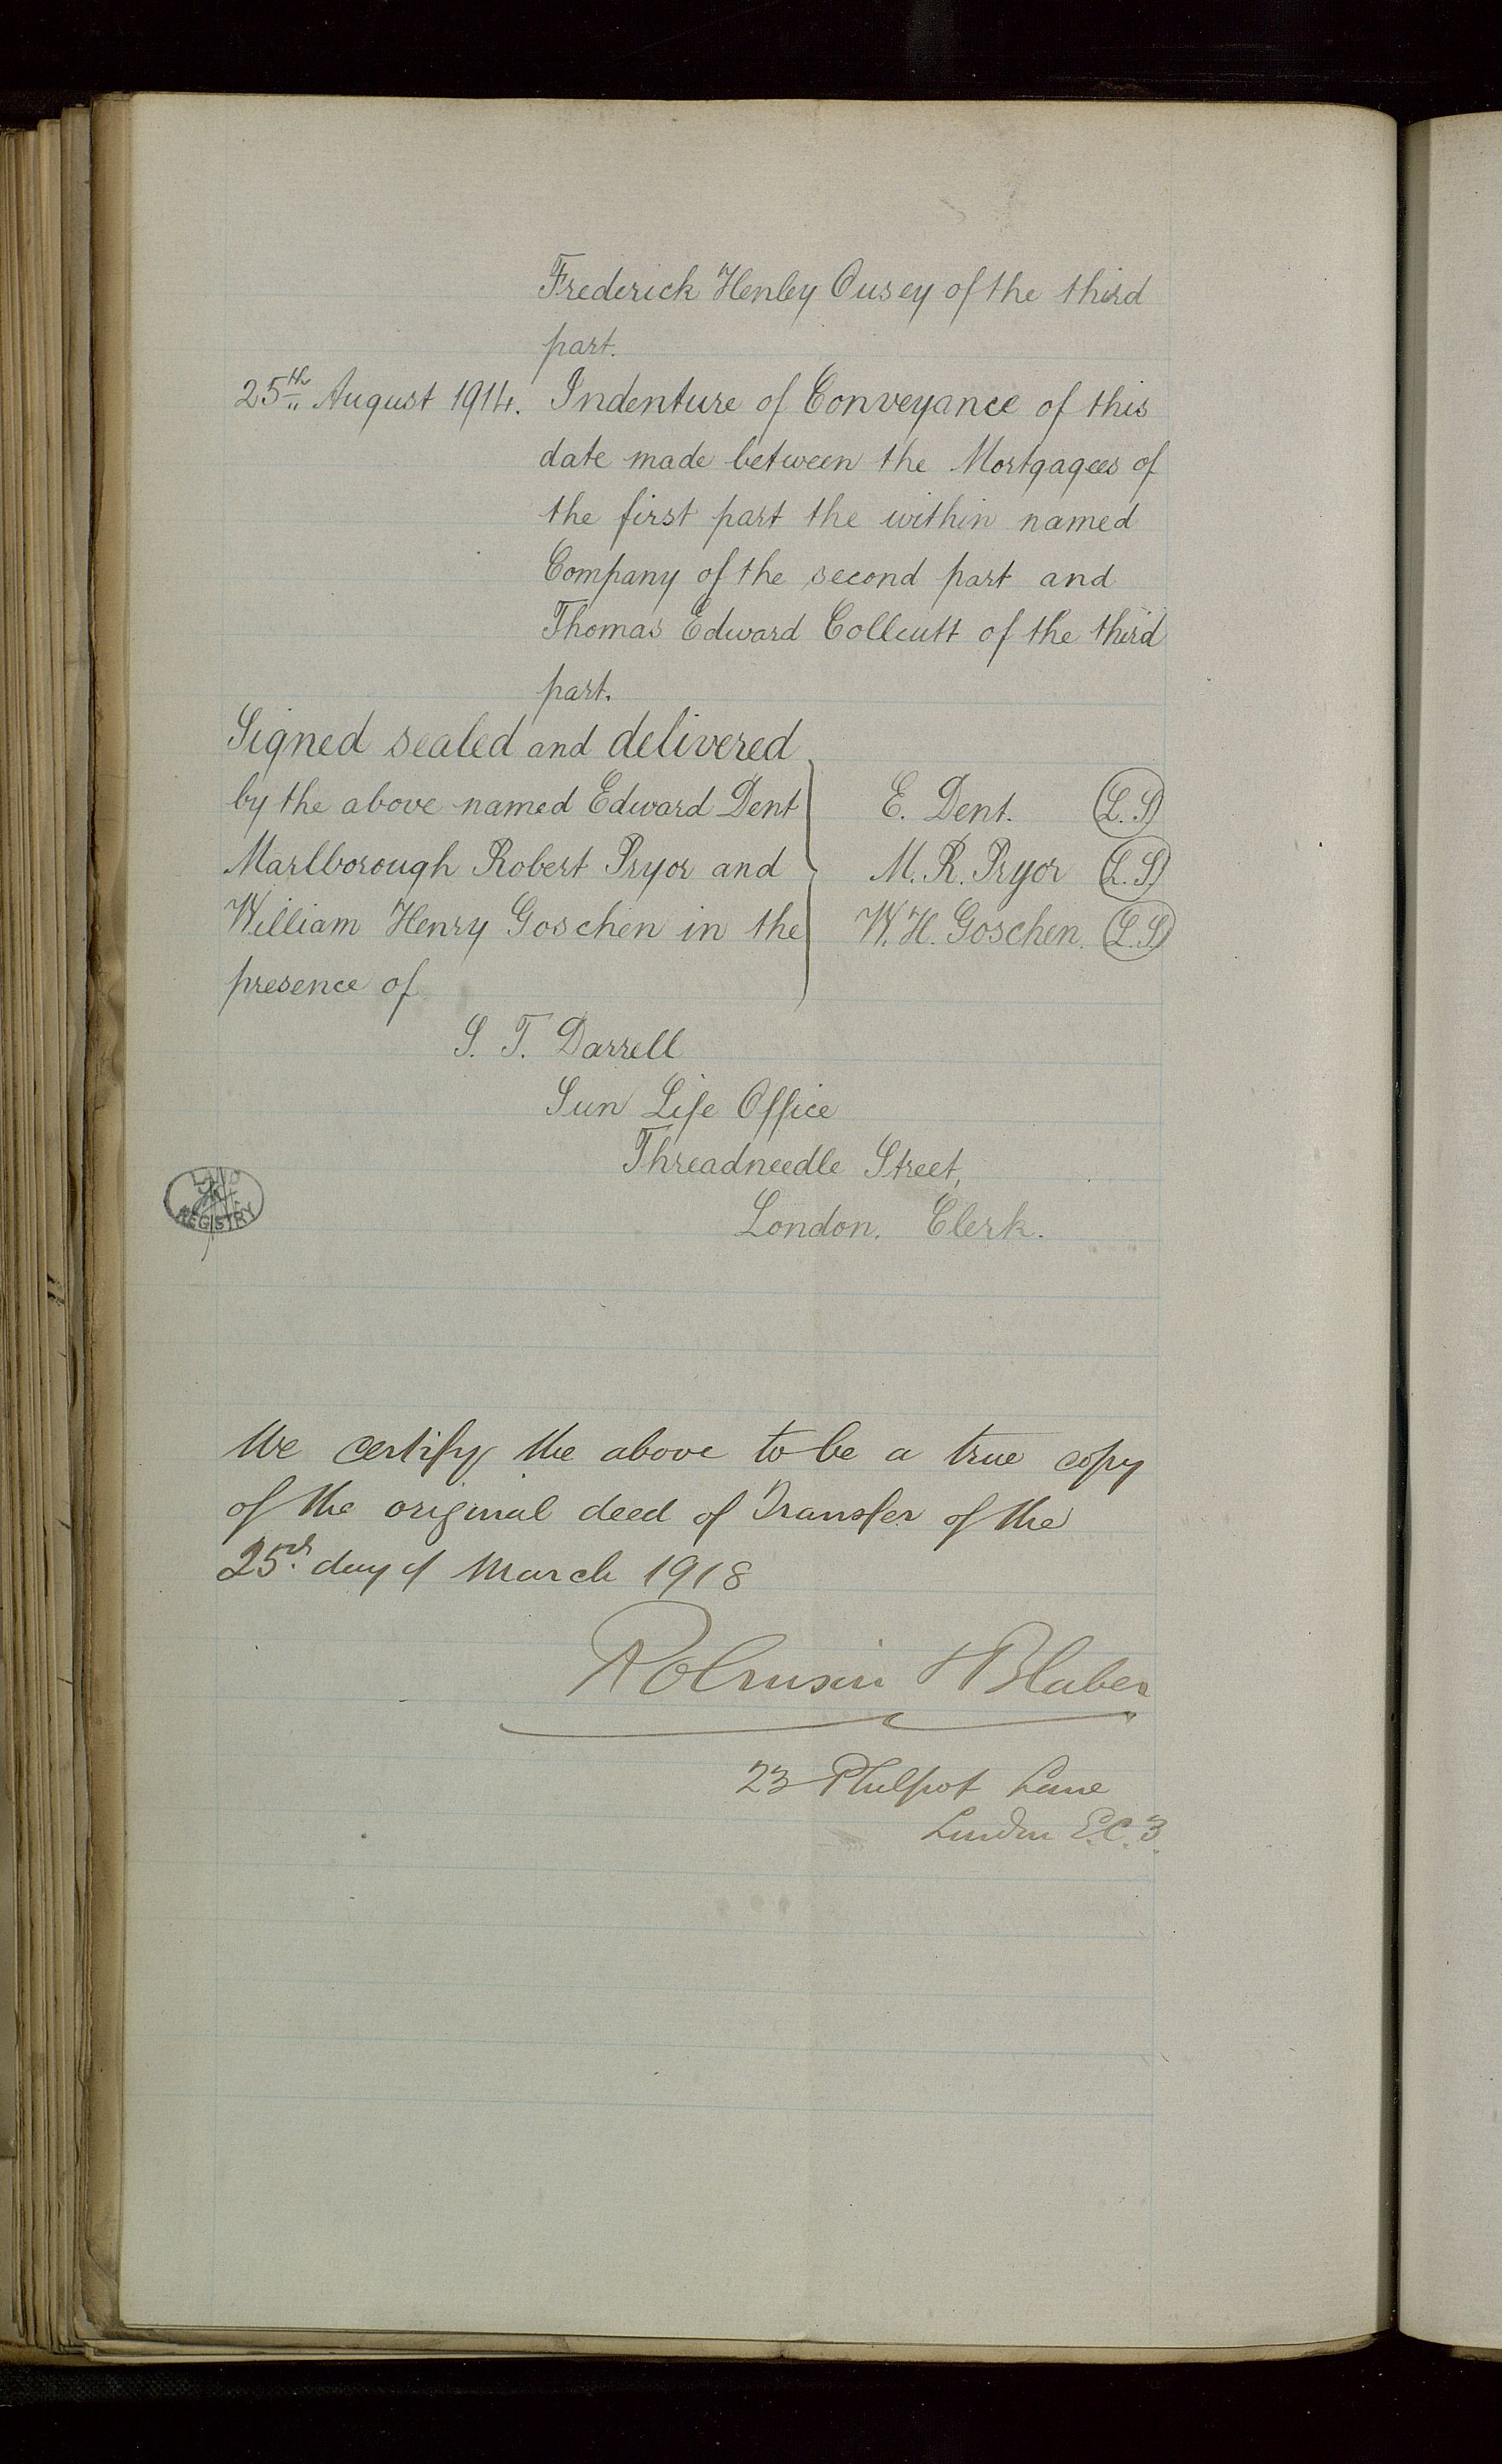 Frederick Henley Ousey of the third
part.
25th August 1914. Indenture of Conveyance of this
date made between the Mortgagees of
the first part the within named
Company of the second part and
Thomas Edward Collcutt of the third
part.
Signed sealed and delivered
by the above named Edward Dent E. Dent. L.S
Marlborough Robert Pryor and M. R. Pryor L.S.
William Henry Goschen in the W. H. Goschen. L.S
presence of
S. T. Darrell
Sun Life Office
Threadneedle Street,
London. Clerk.
LAND
REGISTRY
We certify the above to be a true copy
of the original deed of Transfer of the
25th day of March 1918
Robinson & Blaber
23 Philpot Lane
London E.C. 3.